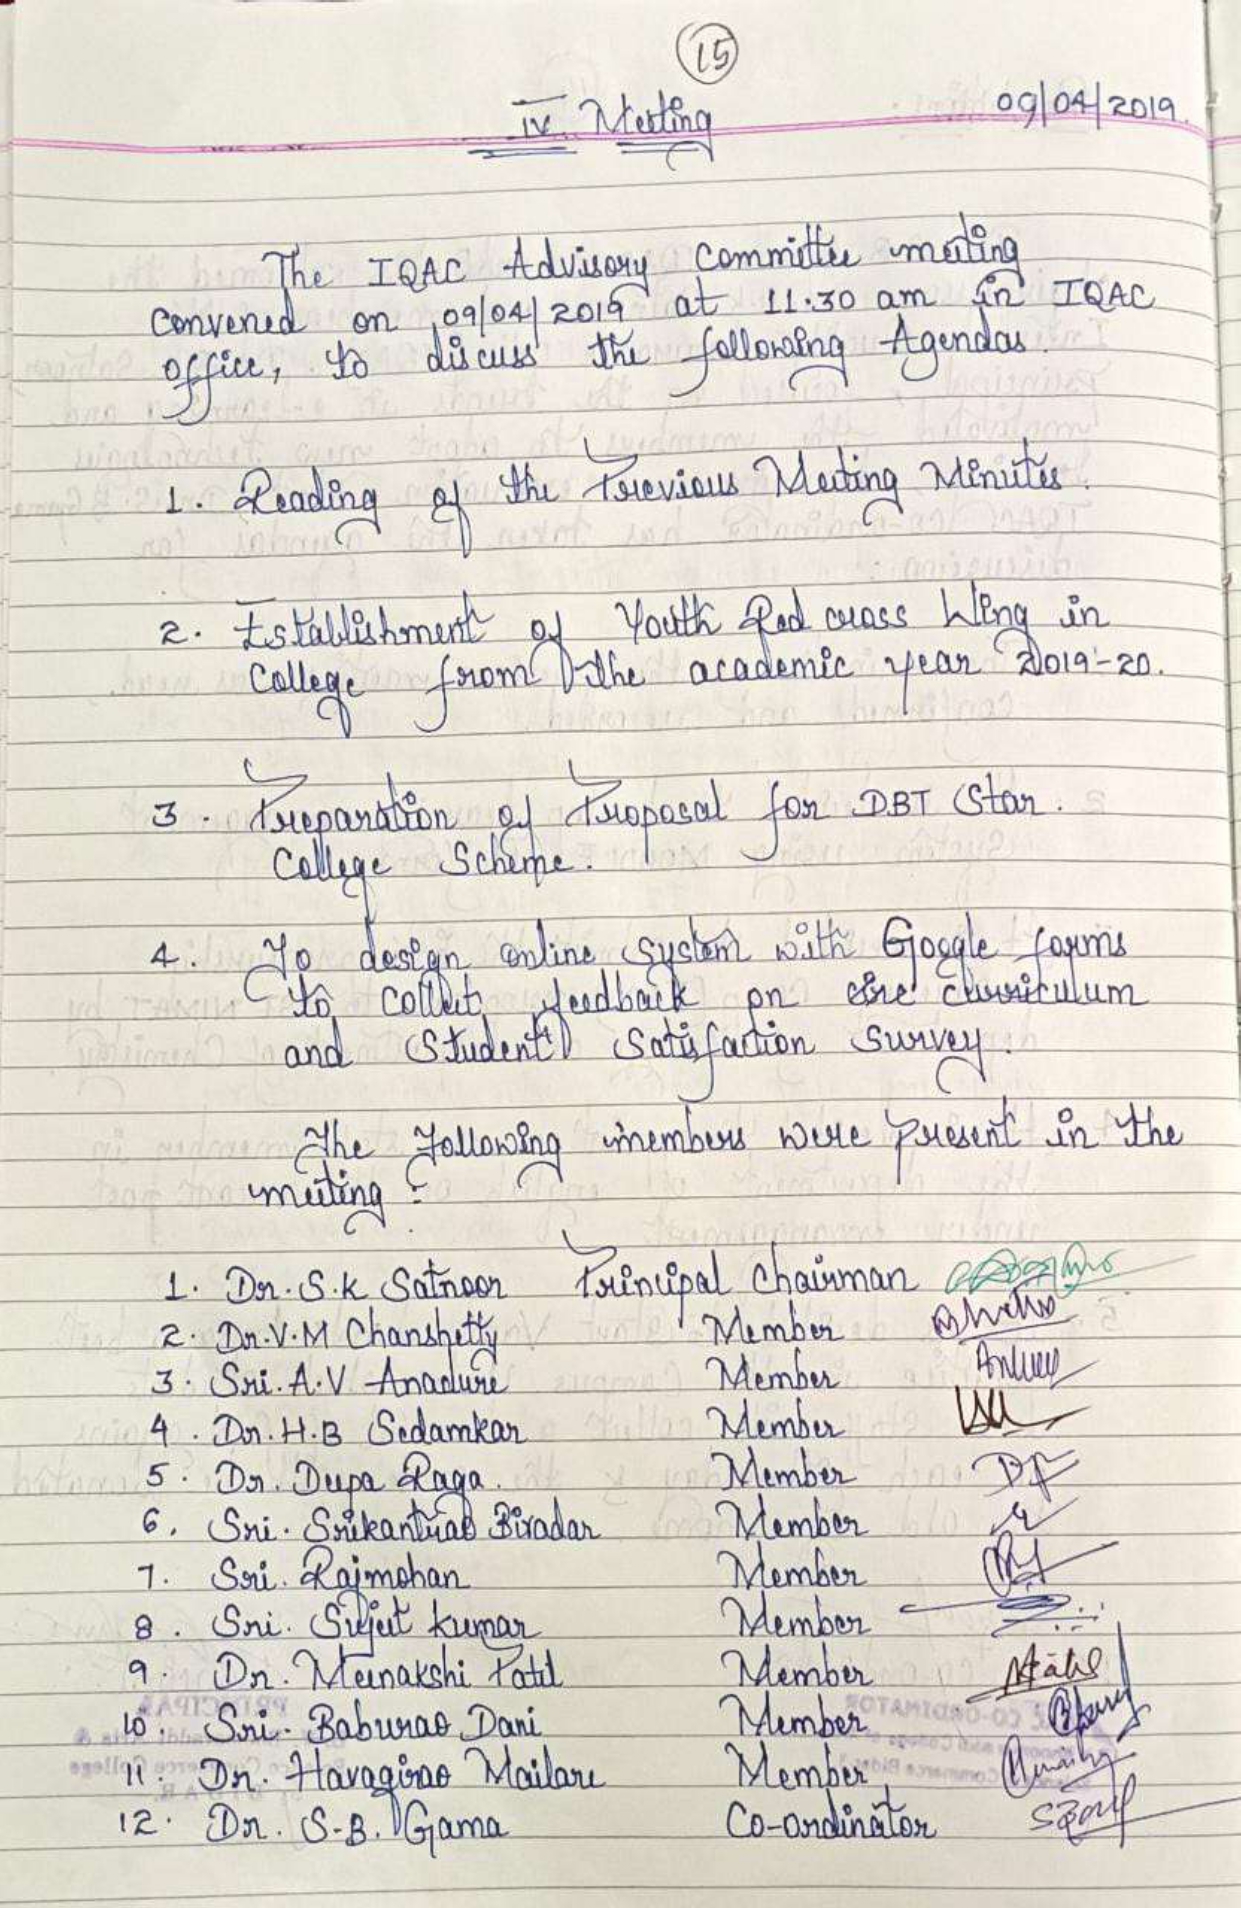 15
IV Meeting
09/04/2019.
The IQAC Advisory Committee meeting
Convened on 09/04/2019 at 11.30 am in IQAC
office, to discuss the following Agendas.
1. Reading of the Previous Meeting Minutes.
2. Establishment of Youth Red cross Wing in
College from the academic year 2019-20.
3. Preparation of Proposal for DBT Star.
College Scheme.
4. To design online system with Google forms
to collect feedback on curriculum
and Student Satisfaction Survey.
The following members were present in the
meeting:
1. Dr. S.K Satnoor Principal Chairman
2. Dr. V.M Chanshetty Member
3. Sri. A.V Anadure Member
4. Dr. H.B Sedamkar Member
5. Dr. Deepa Raga. Member
6. Sri. Srikantrao Biradar Member
7. Sri. Rajmohan Member
8. Sri. Sujeet kumar Member
9. Dr. Meenakshi Patil Member
10. Sri. Baburao Dani Member
11. Dr. Havagirao Mailare Member
12. Dr. S.B. Gama Co-ordinator